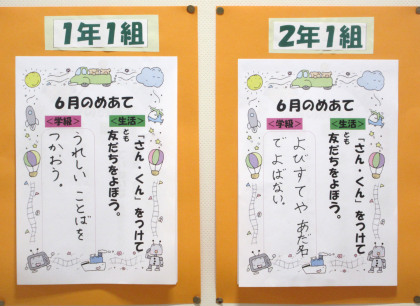 1年1組
6月のめあて
<生活>
「さん・くん」をつけて
友だちをよぼう。
とも
<学級>
うれしい ことばを
つかおう。
2年1組
6月のめあて
<生活>
「さん・くん」をつけて
友だちをよぼう。
とも
<学級>
よびすてや あだ名
で よばない。